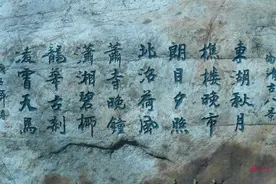 古八景
東湖秋月
樵楼晚市
朗目夕照
北沼荷風
蕭寺晚鐘
瀟湘碧柳
龍華古刹
凌霄天馬